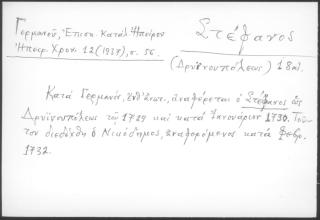 Γερμανοῦ, Ἐπισκ. Κατάλ. Ἠπείρου
Ἠπειρ. Χρον. 12 (1937), σ. 56.
Στέφανος
(Δρυϊνουπόλεως) 18αι.
Κατὰ Γερμανόν, ἔνθ' ἀνωτ., ἀναφέρεται ὁ Στέφανος ὡς
Δρυϊνουπόλεως τῷ 1729 καὶ κατὰ Ἰανουάριον 1730. Τοῦ-
τον διεδέχθη ὁ Νικόδημος, ἀναφερόμενος κατὰ Φεβρ.
1732.